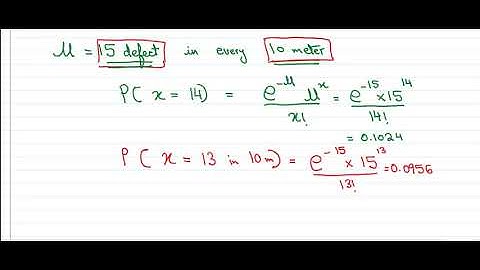 μ = 15 defect in every 10 meter
P( x = 14) = e^-μ μ^x / x! = e^-15 × 15^14 / 14!
= 0.1024
P( x = 13 in 10m) = e^-15 × 15^13 / 13! = 0.0956